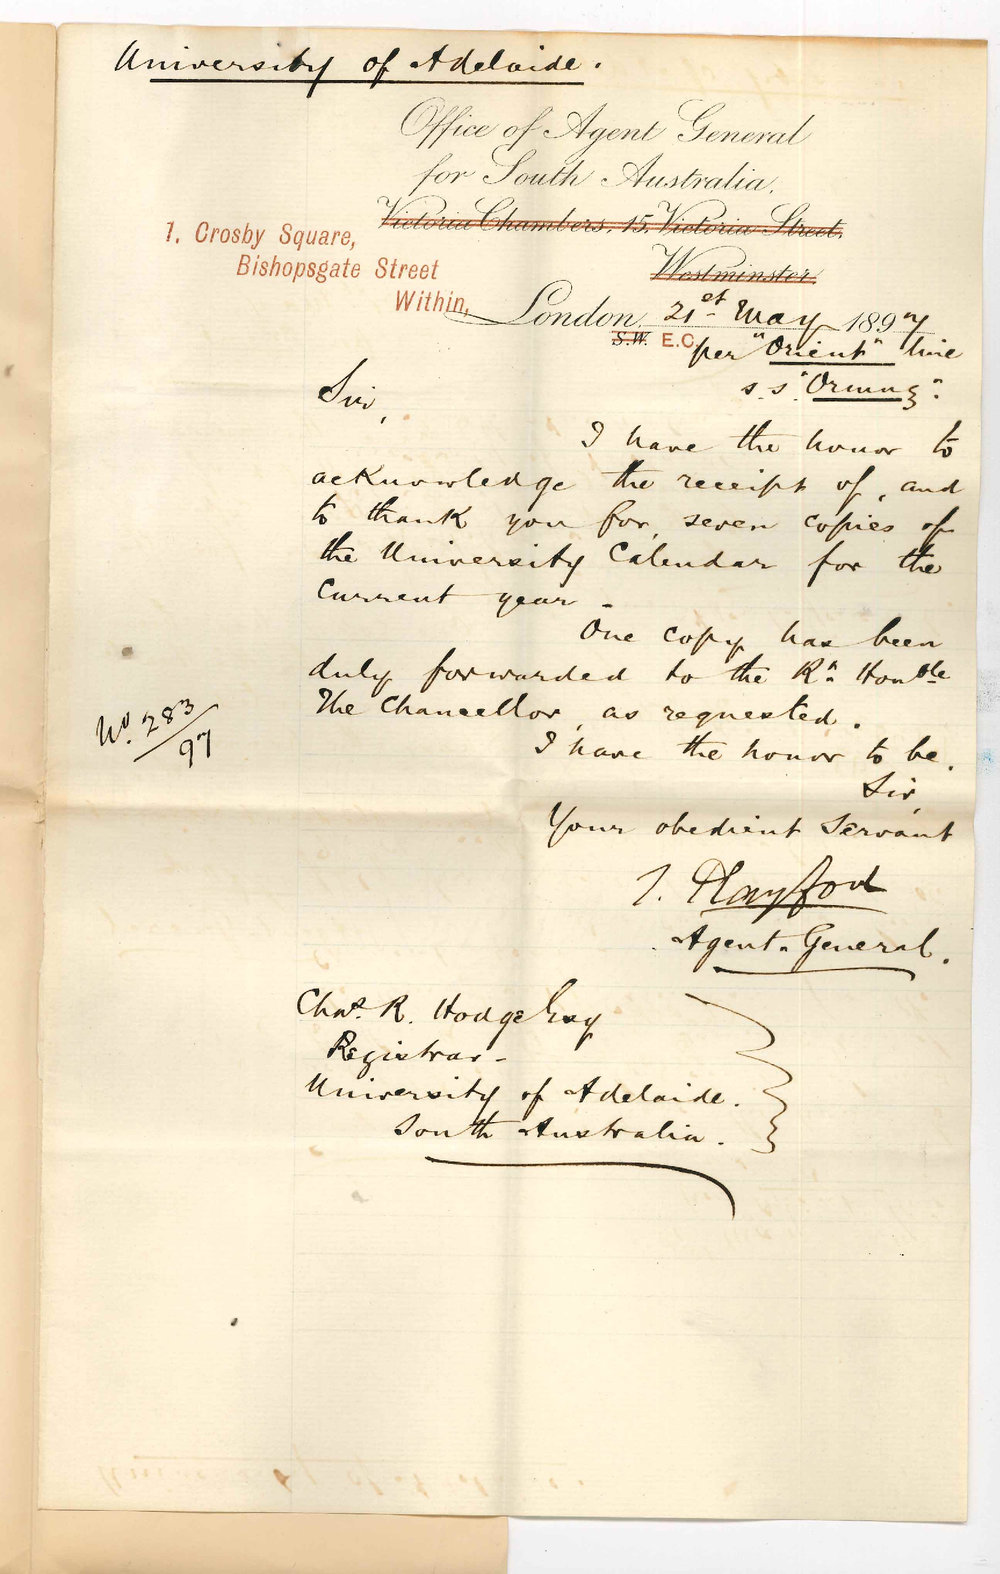 University of Adelaide.
Office of Agent General
for South Australia,
Victoria Chambers, 15, Victoria Street,
Westminster.
1, Crosby Square,
Bishopsgate Street
Within,
London, 21st May 1897
S.W. E.C.
per "Orient" line
s.s. "Ormuz".
Sir,
I have the honor to
acknowledge the receipt of, and
to thank you for, seven copies of
the University Calendar for the
current year -
One copy has been
duly forwarded to the Rt. Honble
The Chancellor, as requested.
No. 283/97
I have the honor to be,
Sir,
Your obedient Servant
T. Playford
Agent-General.
Chas. R. Hodge Esq
Registrar -
University of Adelaide.
South Australia.